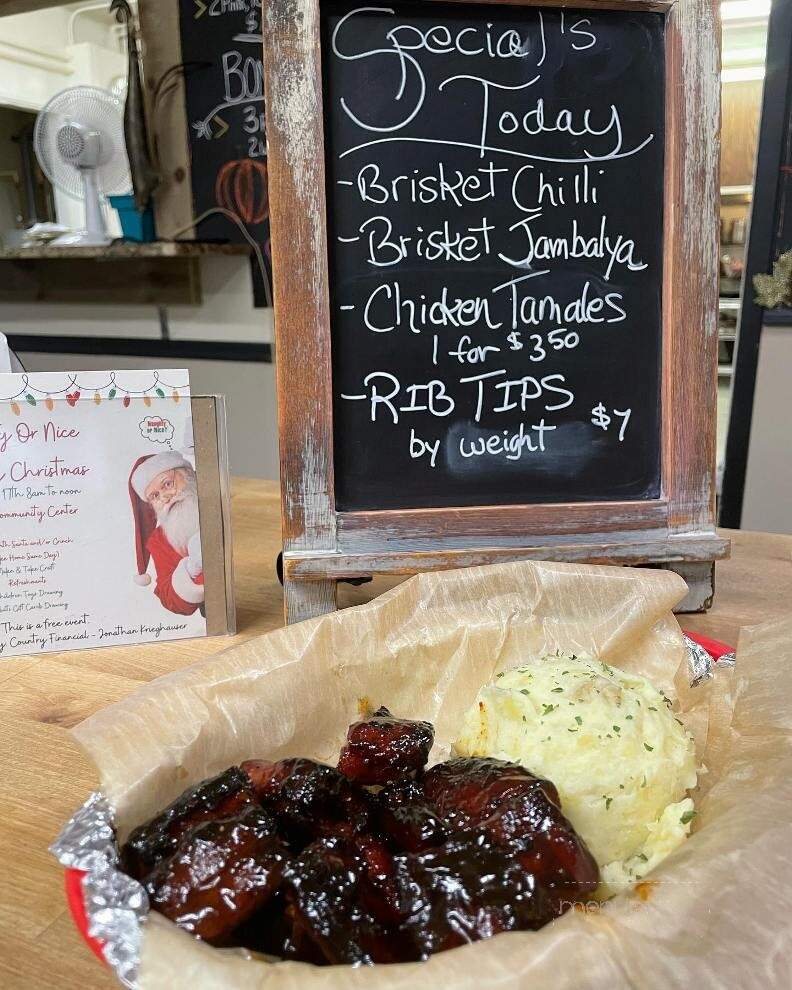 Special's
Today
-Brisket Chilli
-Brisket Jambalya
-Chicken Tamales
1 for $3.50
-RIB TIPS
by weight $7
BON
> 3
2
Naughty
or Nice?
y Or Nice
Christmas
17th 8am to noon
ommunity Center
th Santa and/or Grinch
e Home Same Day)
ake & Take Craft
Refreshments
hildren Toys Drawing
ults Gift Cards Drawing
This is a free event.
y Country Financial - Jonathan Krieghauser